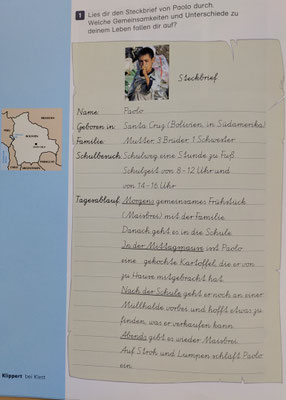 1 Lies dir den Steckbrief von Paolo durch.
Welche Gemeinsamkeiten und Unterschiede zu
deinem Leben fallen dir auf?
Steckbrief
Name: Paolo
Geboren in: Santa Cruz (Bolivien in Südamerika)
Familie: Mutter 3 Brüder 1 Schwester
Schulbesuch: Schulweg eine Stunde zu Fuß
Schulzeit von 8-12 Uhr und
von 14-16 Uhr
Tagesablauf: Morgens gemeinsames Frühstück
(Maisbrei) mit der Familie.
Danach geht es in die Schule.
In der Mittagspause isst Paolo
eine gekochte Kartoffel, die er von
zu Hause mitgebracht hat.
Nach der Schule geht er noch an einer
Müllhalde vorbei und hofft etwas zu
finden, was er verkaufen kann.
Abends gibt es wieder Maisbrei.
Auf Stroh und Lumpen schläft Paolo
ein.
BOLIVIEN
Klippert bei Klett